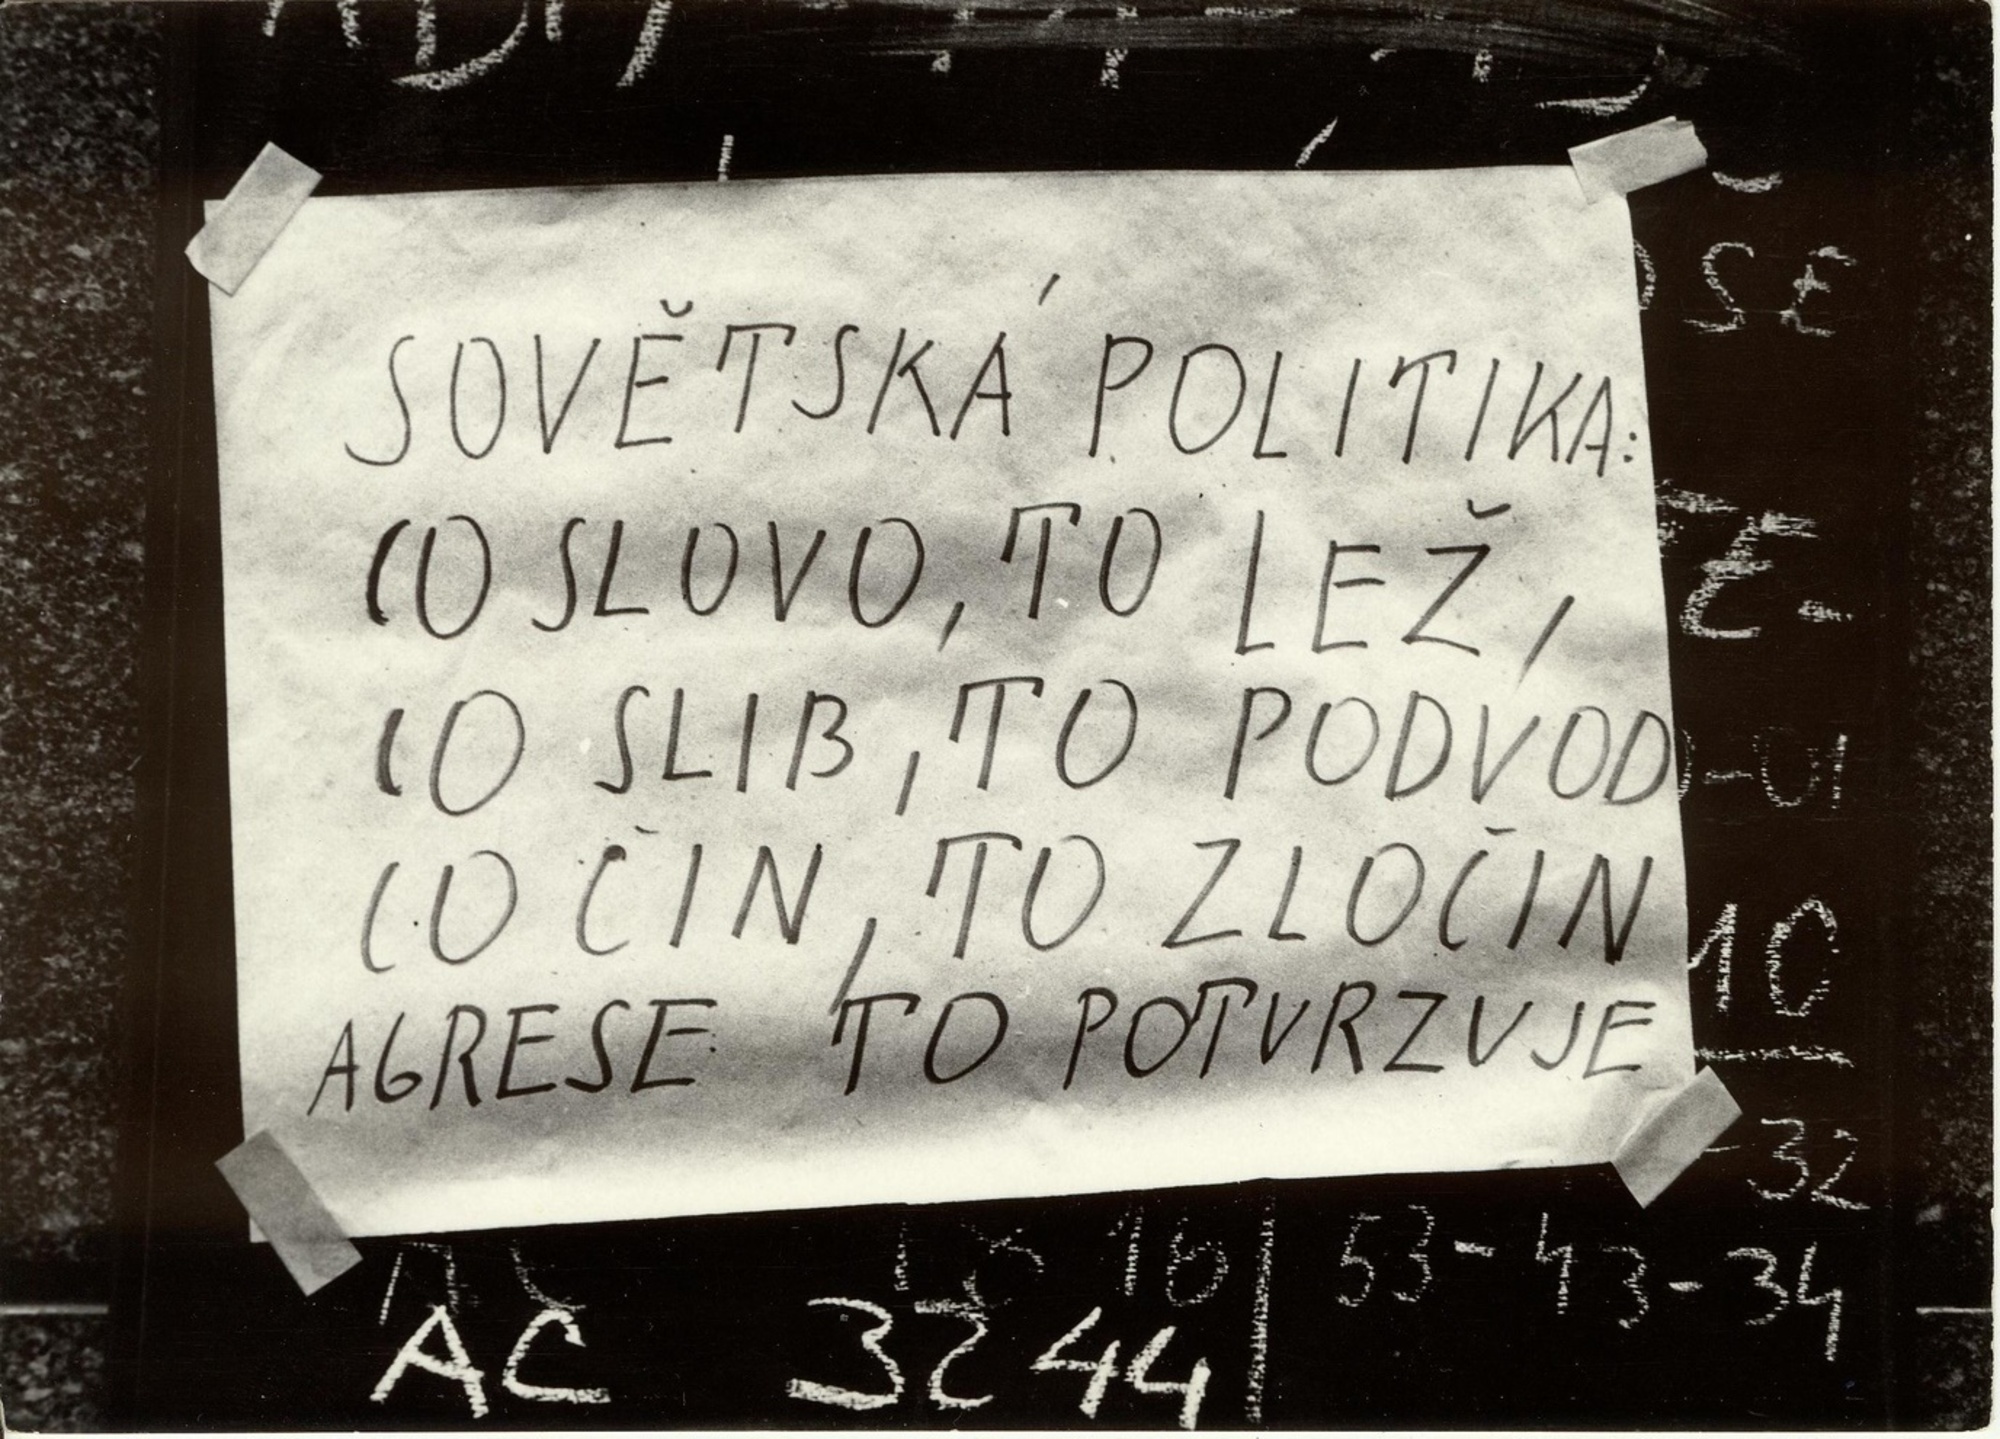 SOVĚTSKÁ POLITIKA:
CO SLOVO, TO LEŽ,
CO SLIB, TO PODVOD
CO ČIN, TO ZLOČIN
AGRESE TO POTVRZUJE
SE
10
32
53-43-34
AC 3244